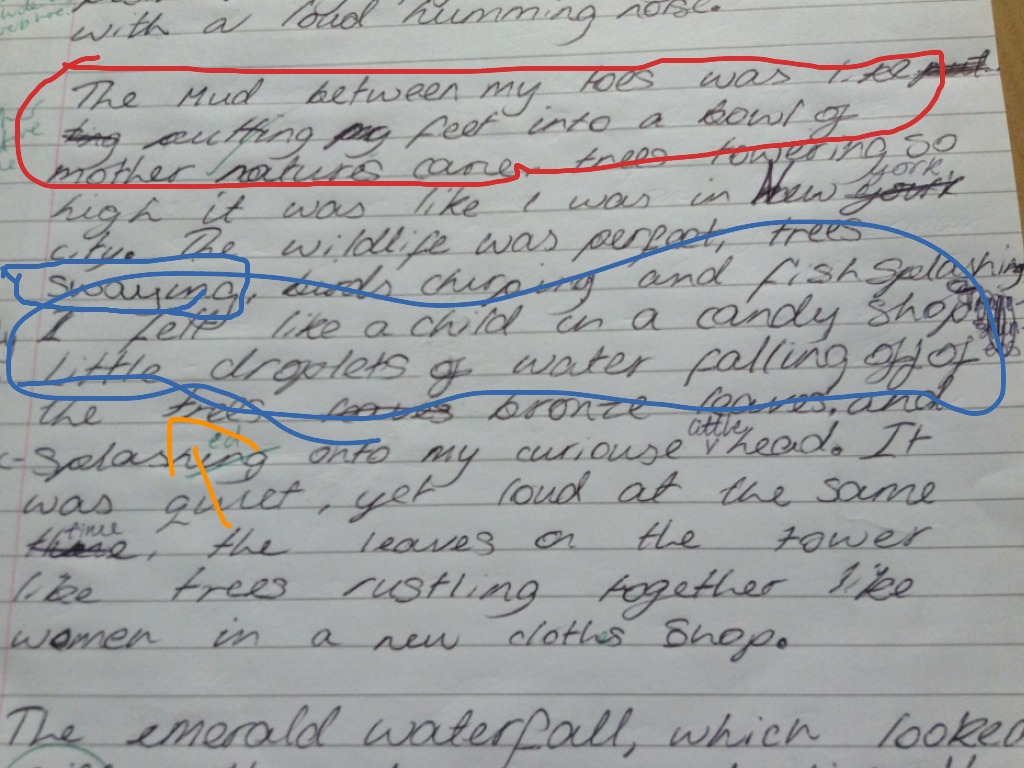 with a loud humming noise.
The Mud between my toes was like
cutting my feet into a bowl of
mother natures cane, trees towering so
high it was like I was in New york
city. The wildlife was perfect, trees
swaying, birds chirping and fish splashing
I felt like a child in a candy shop
little droplets of water falling off of
the trees leaves bronze leaves, and
ed
splashing onto my curiouse little head. It
was quiet, yet loud at the same
time, the leaves on the tower
like trees rustling together like
women in a new cloths shop.
The emerald waterfall, which looked